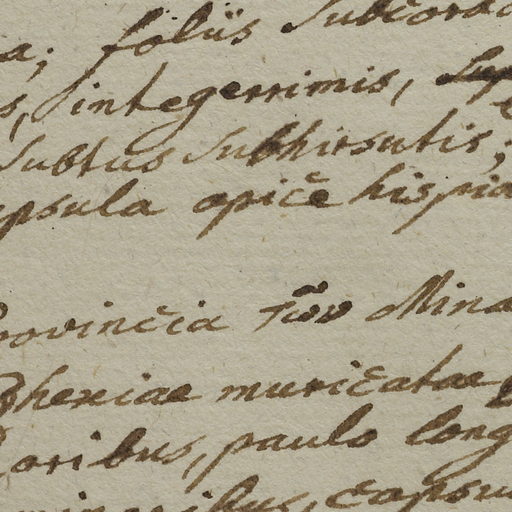 a; foliis subcorda
s, integerrimis,
subtus subhirsutis;
psula apice hispid
rovincia τῶν Mina
Rhexiae muricatae
loribus, paulo long
minoribus, capsu